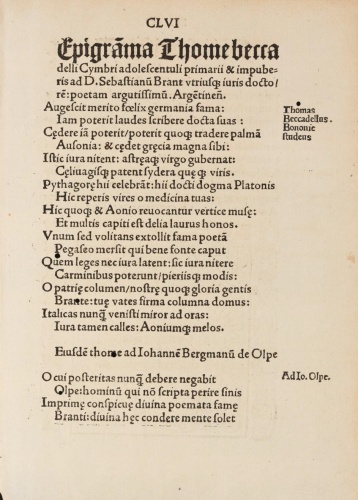 CLVI
Epigrãma Thome becca
delli Cymbri adolescentuli primarii & impube-
ris ad D. Sebastianũ Brant vtriusq; iuris docto/
rẽ: poetam argutissimũ. Argẽtineñ.
Augescit merito fœlix germania fama:
Iam poterit laudes scribere docta suas :
Thomas
Beccadellus.
Bononie
studens
Cędere iã poterit/poterit quoq; tradere palmã
Ausonia : & cędet gręcia magna sibi:
Istic iura nitent: astręaq; virgo gubernat:
Cęliuagisq; patent sydera quęq; viris.
Pythagorę hii celebrãt: hii docti dogma Platonis
Hic reperis vires o medicina tuas:
Hic quoq; & Aonio reuocantur vertice musę:
Et multis capiti est delia laurus honos.
Vnum sed volitans extollit fama poetã
Pegaseo mersit qui bene fonte caput
Quem leges nec iura latent: sic iura nitere
Carminibus poterunt/pieriisq; modis:
O patrię columen/nostrę quoq; gloria gentis
Brante: tuę vates firma columna domus:
Italicas nunq̃ venisti miror ad oras:
Iura tamen calles: Aoniumq; melos.
Eiusdẽ thome ad Iohannẽ Bergmanũ de Olpe
O cui posteritas nunq̃ debere negabit
Ad Io. Olpe.
Olpe: hominũ qui nõ scripta perire sinis
Imprimę conspicuę diuina poemata famę
Branti: diuina hęc condere mente solet